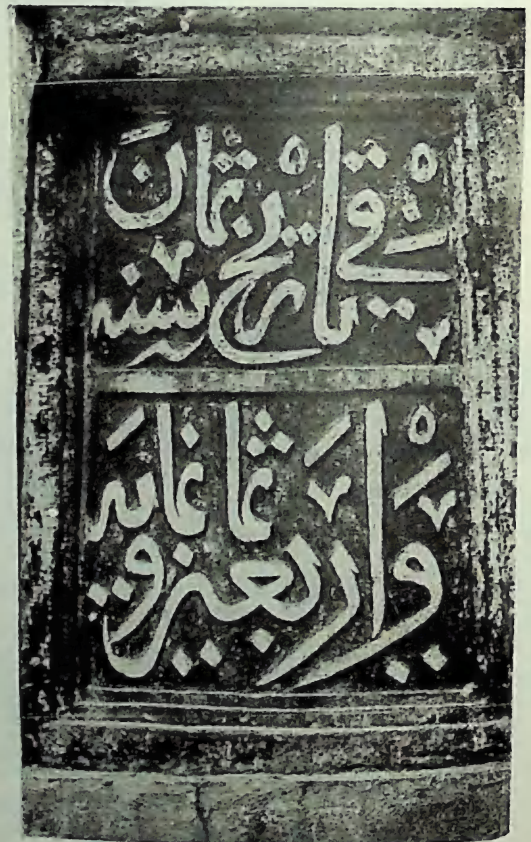 في تاريخ سنه ثمان
واربعين وثمانمايه